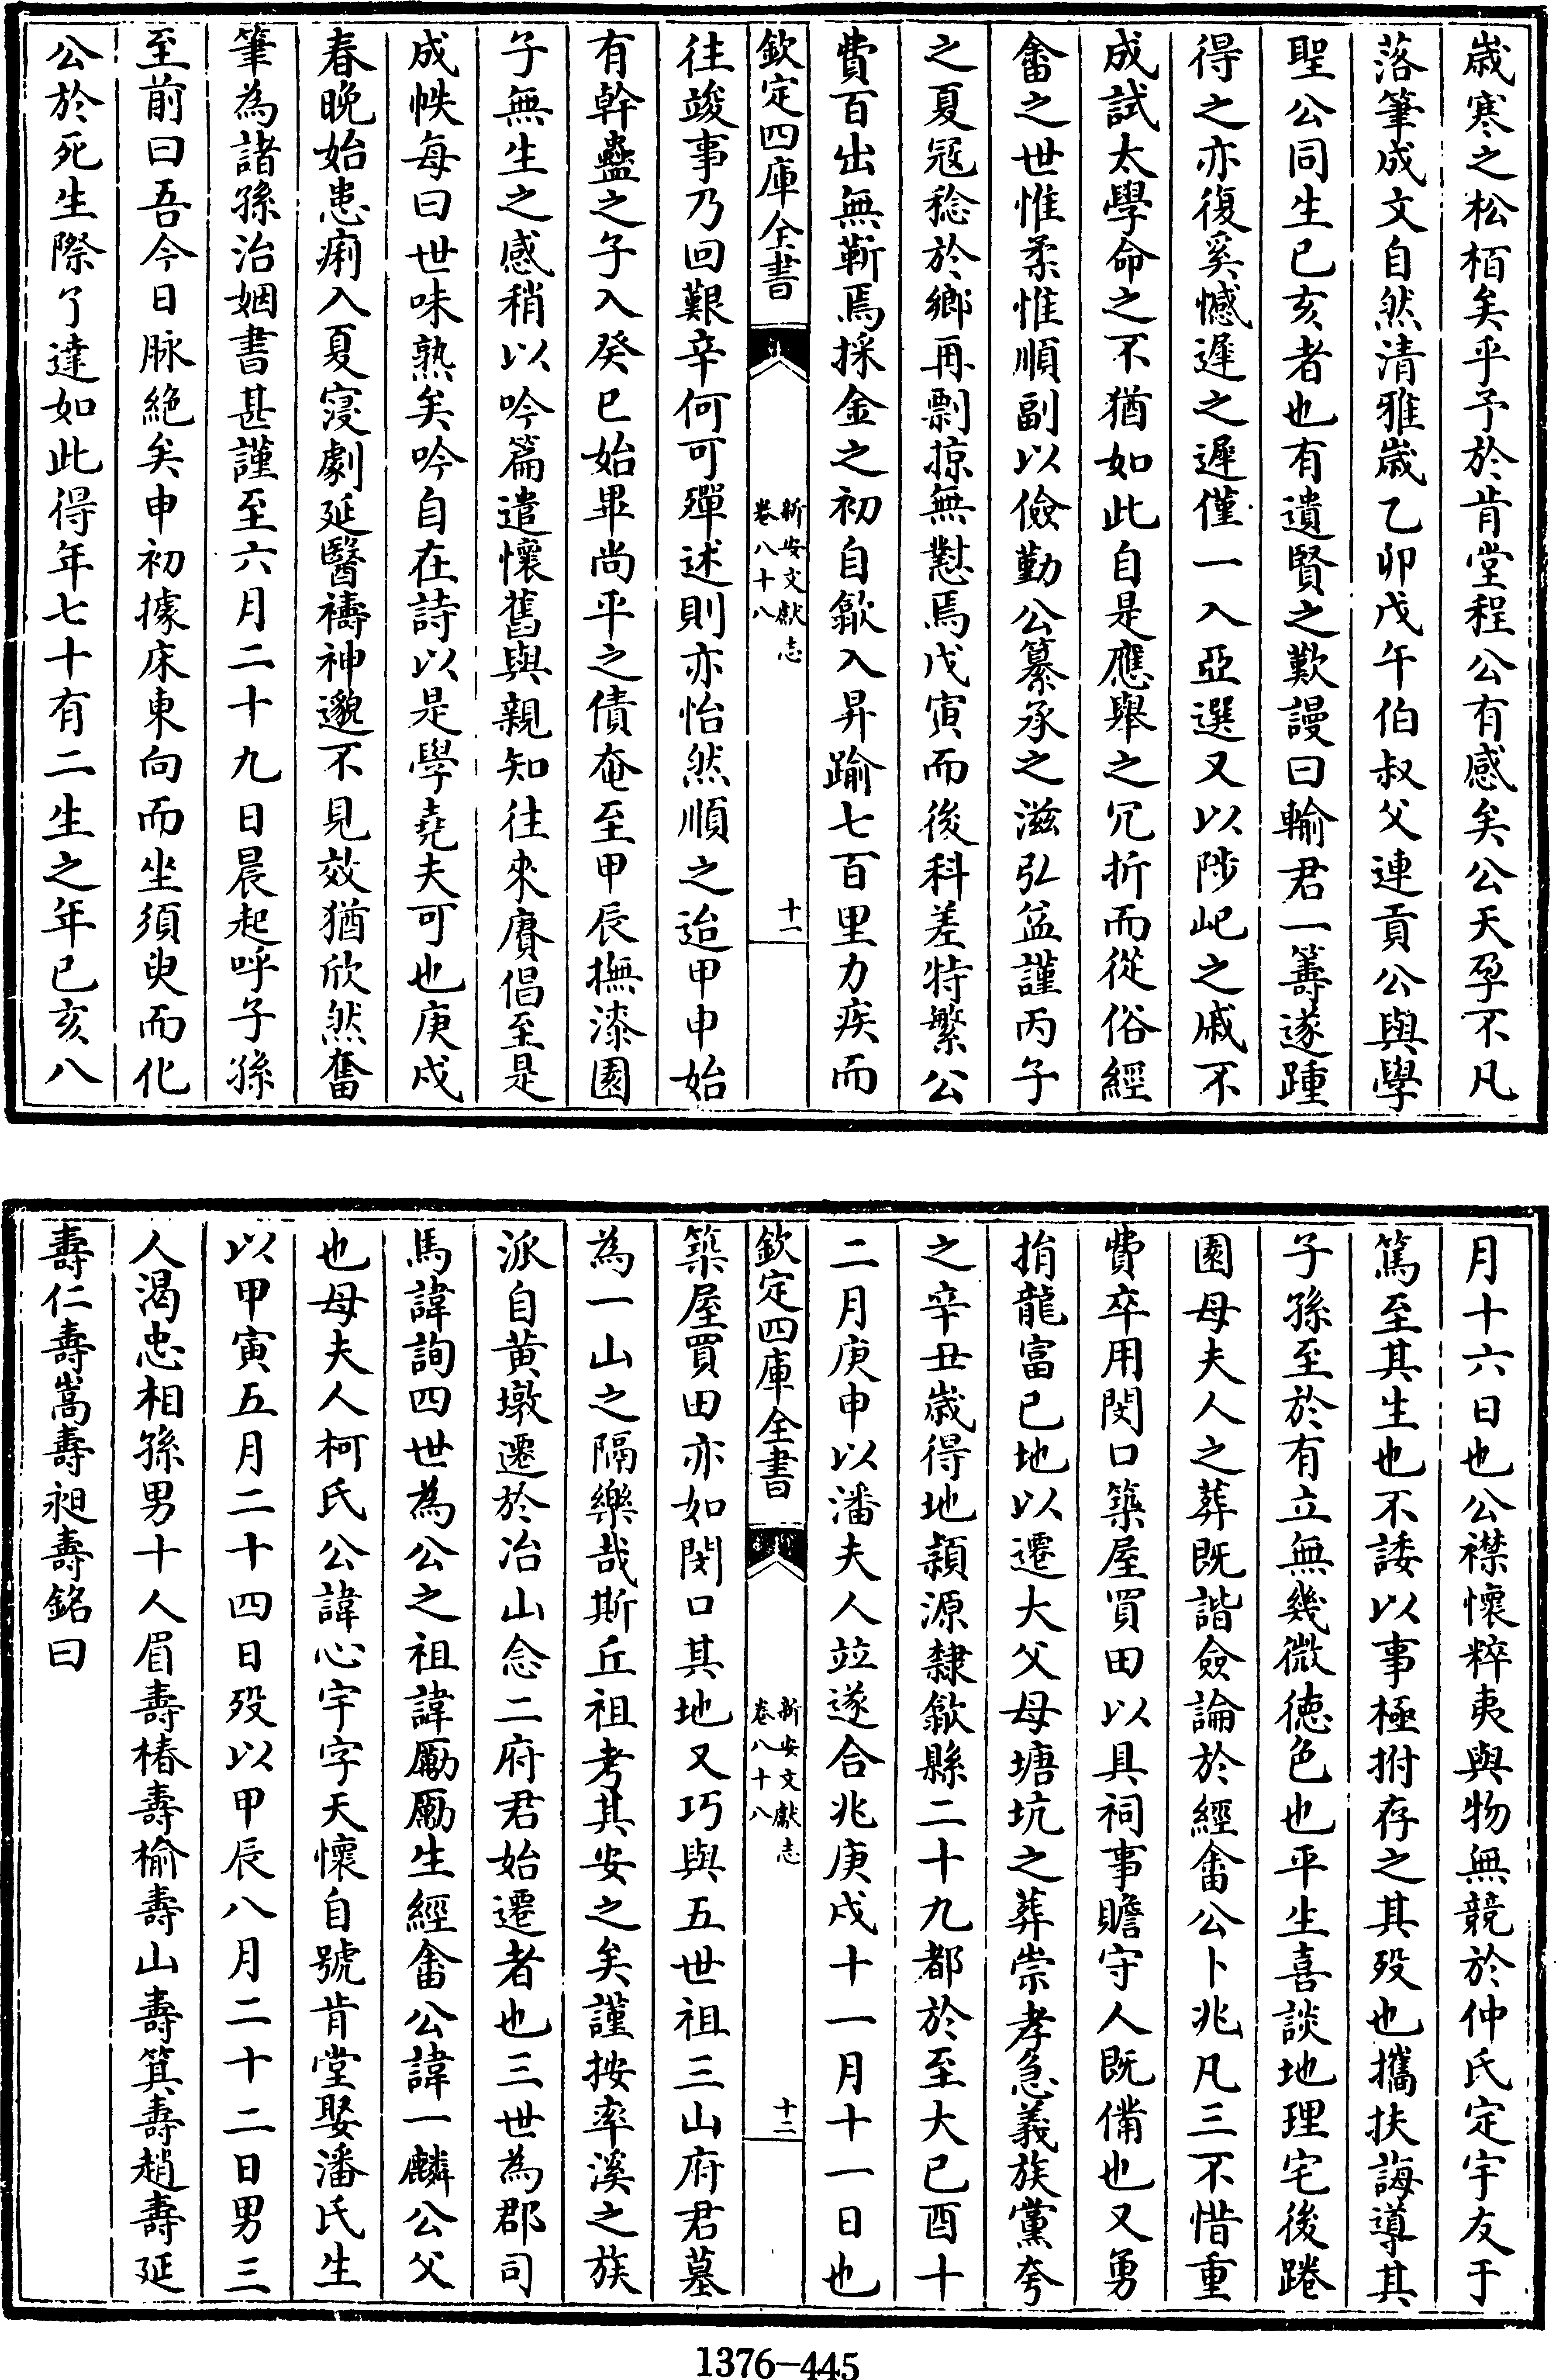 歳寒之松栢矣乎予於肯堂程公有感矣公天孕不凡
落筆成文自然清雅歳乙卯戊午伯叔父連貢公與學
聖公同生已亥者也有遺賢之歎謾曰輸君一籌遂踵
得之亦復奚憾遲之遲僅一入亞選又以陟屺之戚不
成試太學命之不猶如此自是應舉之冗折而從俗經
畬之世惟柔惟順副以儉勤公纂承之滋弘益謹丙子
之夏冦稔於鄉再剽掠無懟焉戊寅而後科差特繁公
費百出無靳焉採金之初自歙入昇踰七百里力疾而
欽定四庫全書
新安文獻志
卷八十八
十一
往竣事乃回艱辛何可殫述則亦怡然順之迨甲申始
有幹蠱之子入癸巳始畢尚平之債奄至甲辰撫漆園
子無生之感稍以吟篇遣懷舊與親知往來賡倡至是
成帙每曰世味熟矣吟自在詩以是學堯夫可也庚戌
春晚始患痢入夏寖劇延醫禱神邈不見效猶欣然奮
筆為諸孫治姻書甚謹至六月二十九日晨起呼子孫
至前曰吾今日脉絶矣申初據床東向而坐須臾而化
公於死生際了達如此得年七十有二生之年已亥八
月十六日也公襟懷粹夷與物無競於仲氏定宇友于
篤至其生也不諉以事極拊存之其殁也攜扶誨導其
子孫至於有立無幾微徳色也平生喜談地理宅後踡
園母夫人之葬既諧僉論於經畬公卜兆凡三不惜重
費卒用閔口築屋買田以具祠事贍守人既備也又勇
捐龍富已地以遷大父母塘坑之葬崇孝急義族黨夸
之辛丑歳得地潁源隸歙縣二十九都於至大已酉十
二月庚申以潘夫人竝遂合兆庚戌十一月十一日也
欽定四庫全書
新安文獻志
卷八十八
十二
築屋買田亦如閔口其地又巧與五世祖三山府君墓
為一山之隔樂哉斯丘祖考其安之矣謹按率溪之族
派自黄墩遷於冶山念二府君始遷者也三世為郡司
馬諱詢四世為公之祖諱勵勵生經畬公諱一麟公父
也母夫人柯氏公諱心宇字天懷自號肯堂娶潘氏生
以甲寅五月二十四日殁以甲辰八月二十二日男三
人渴忠相孫男十人眉壽椿壽榆壽山壽箕壽趙壽延
壽仁壽嵩壽昶壽銘曰
1376-445